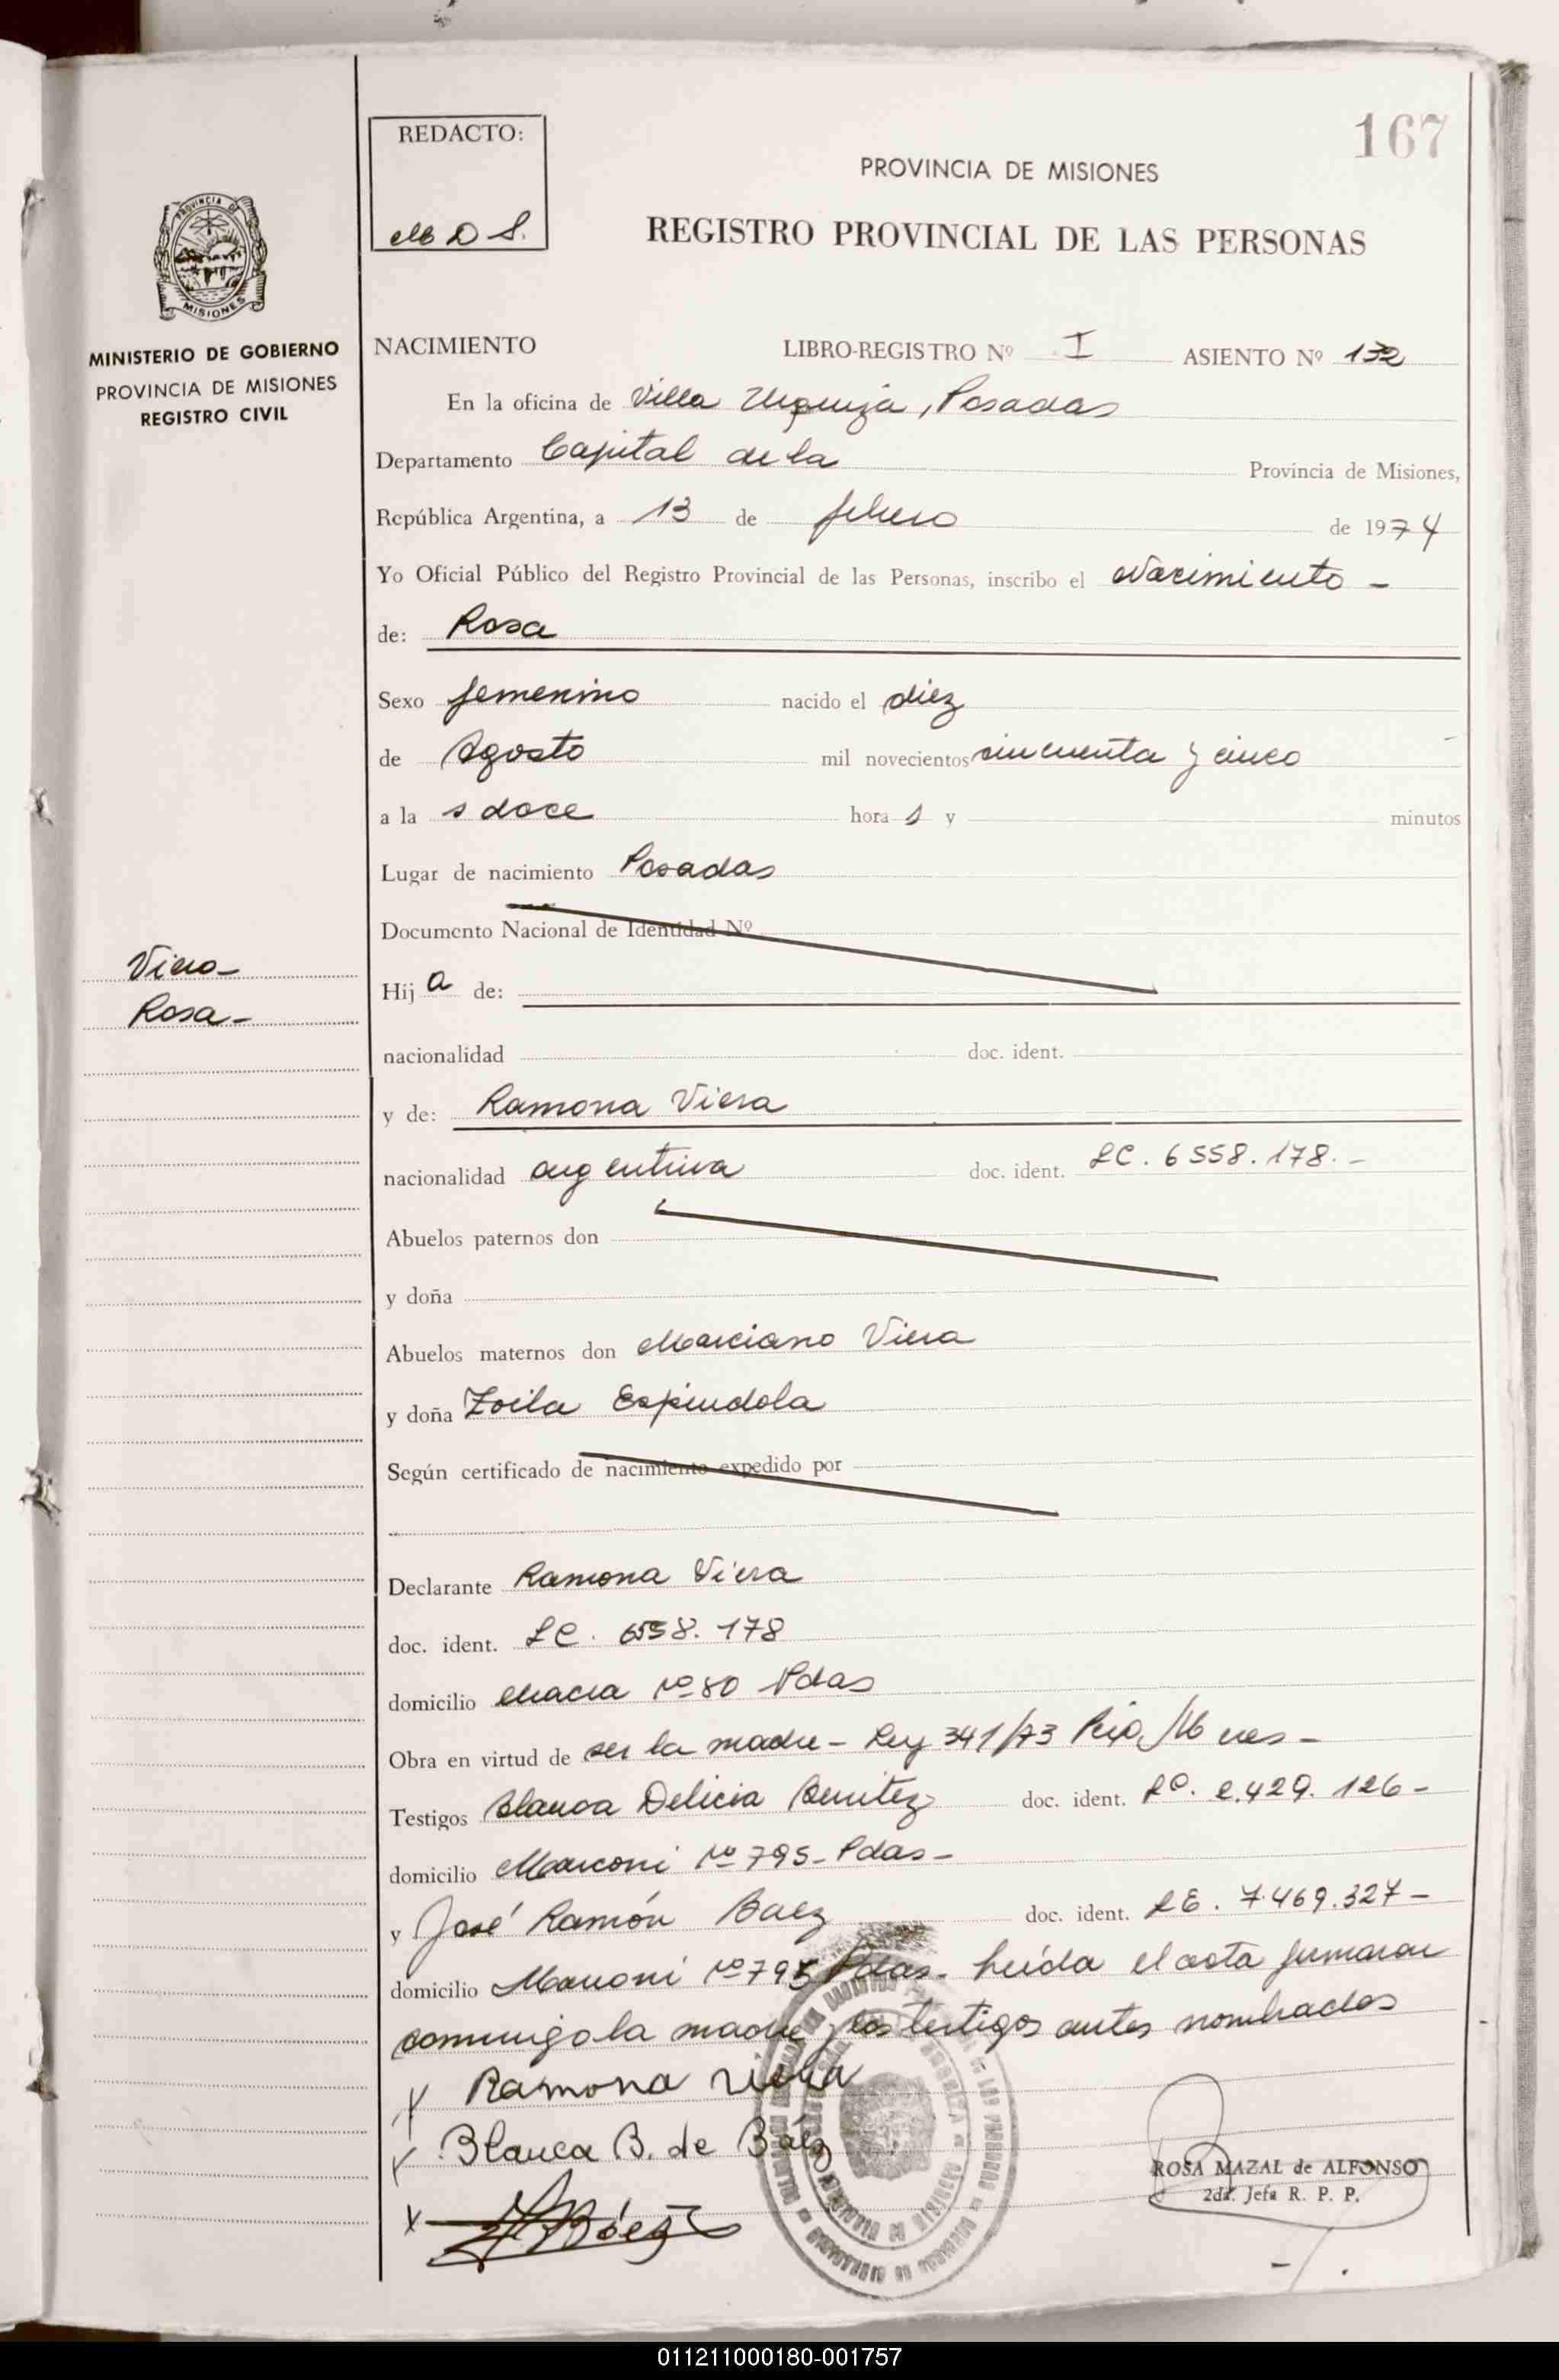 167
REDACTO:
M D S.
PROVINCIA DE MISIONES
REGISTRO PROVINCIAL DE LAS PERSONAS
PROVINCIA DE
MISIONES
MINISTERIO DE GOBIERNO
PROVINCIA DE MISIONES
REGISTRO CIVIL
NACIMIENTO LIBRO-REGISTRO Nº I ASIENTO Nº 132
En la oficina de Villa Urquiza, Posadas
Departamento Capital de la Provincia de Misiones,
República Argentina, a 13 de febrero de 1974
Yo Oficial Público del Registro Provincial de las Personas, inscribo el Nacimiento -
de: Rosa
Sexo femenino nacido el diez
de Agosto mil novecientos cincuenta y cinco
a la s doce hora s y minutos
Lugar de nacimiento Posadas
Documento Nacional de Identidad Nº
Viera -
Rosa -
Hij a de:
nacionalidad doc. ident.
y de: Ramona Viera
nacionalidad argentina doc. ident. LC. 6558.178. -
Abuelos paternos don
y doña
Abuelos maternos don Marciano Viera
y doña Zoila Espindola
Según certificado de nacimiento expedido por
Declarante Ramona Viera
doc. ident. LC. 6558.178
domicilio Chacra Nº 80 Pdas
Obra en virtud de ser la madre - Ley 341/73 Mnes -
Testigos Blanca Delicia Benitez doc. ident. LC. 2.429.126 -
domicilio Marconi Nº 795 - Pdas -
y José Ramón Baez doc. ident. LE. 7.469.327 -
domicilio Marconi Nº 795 Pdas - Leída el acta firmaron
conmigo la madre y los testigos antes nombrados
X Ramona Viera
X Blanca B. de Báez
X Báez
ROSA MAZAL de ALFONSO
2da. Jefa R. P. P.
011211000180-001757